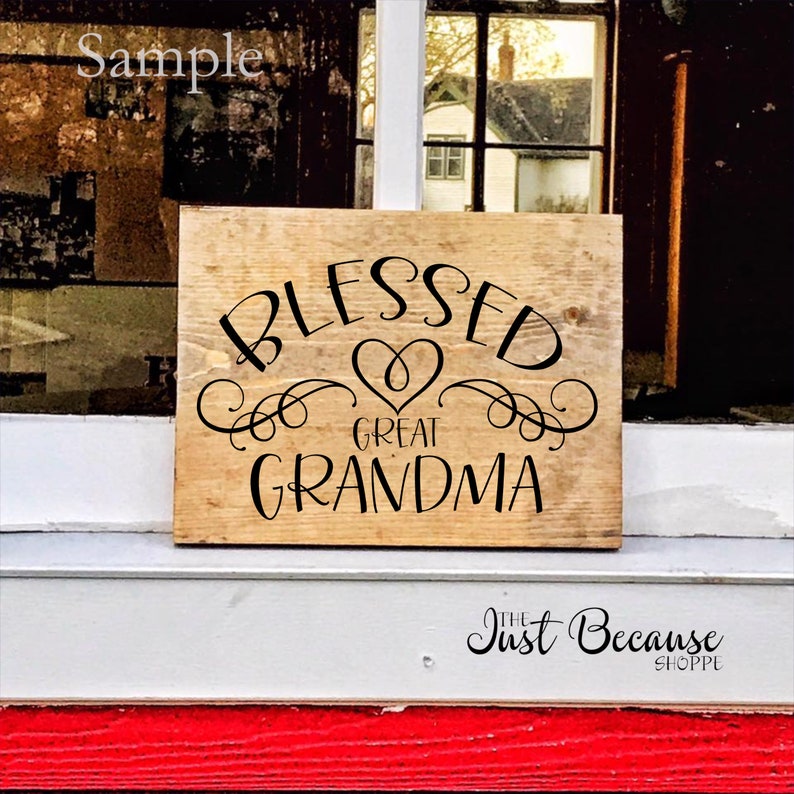 Sample
BLESSED
GREAT
GRANDMA
THE
Just Because
SHOPPE